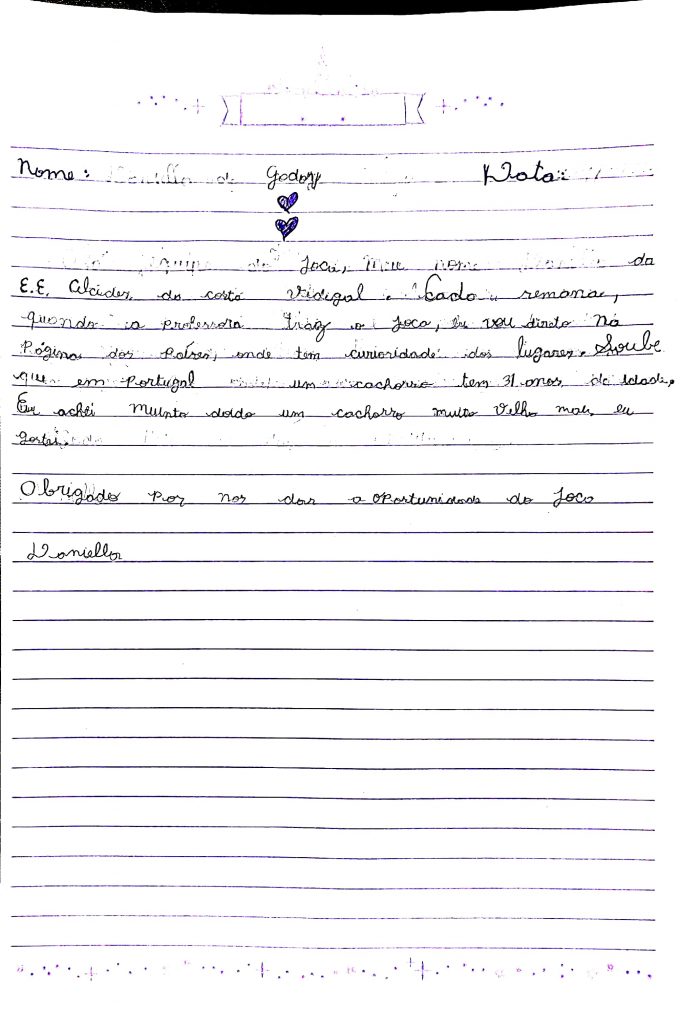 Nome: de Godoy Data:
equipe do Joca, meu nome da
E.E. Alcides da costa Vidigal. Cada semana,
quando a professora traz o Joca, eu vou direto na
Página dos Países, onde tem curiosidade dos lugares. Soube
que em Portugal um cachorro tem 31 anos de idade.
Eu achei muinto doido um cachorro muito velho mais eu
gostei.
Obrigado por nos dar a oportunidade do Joca
Daniella